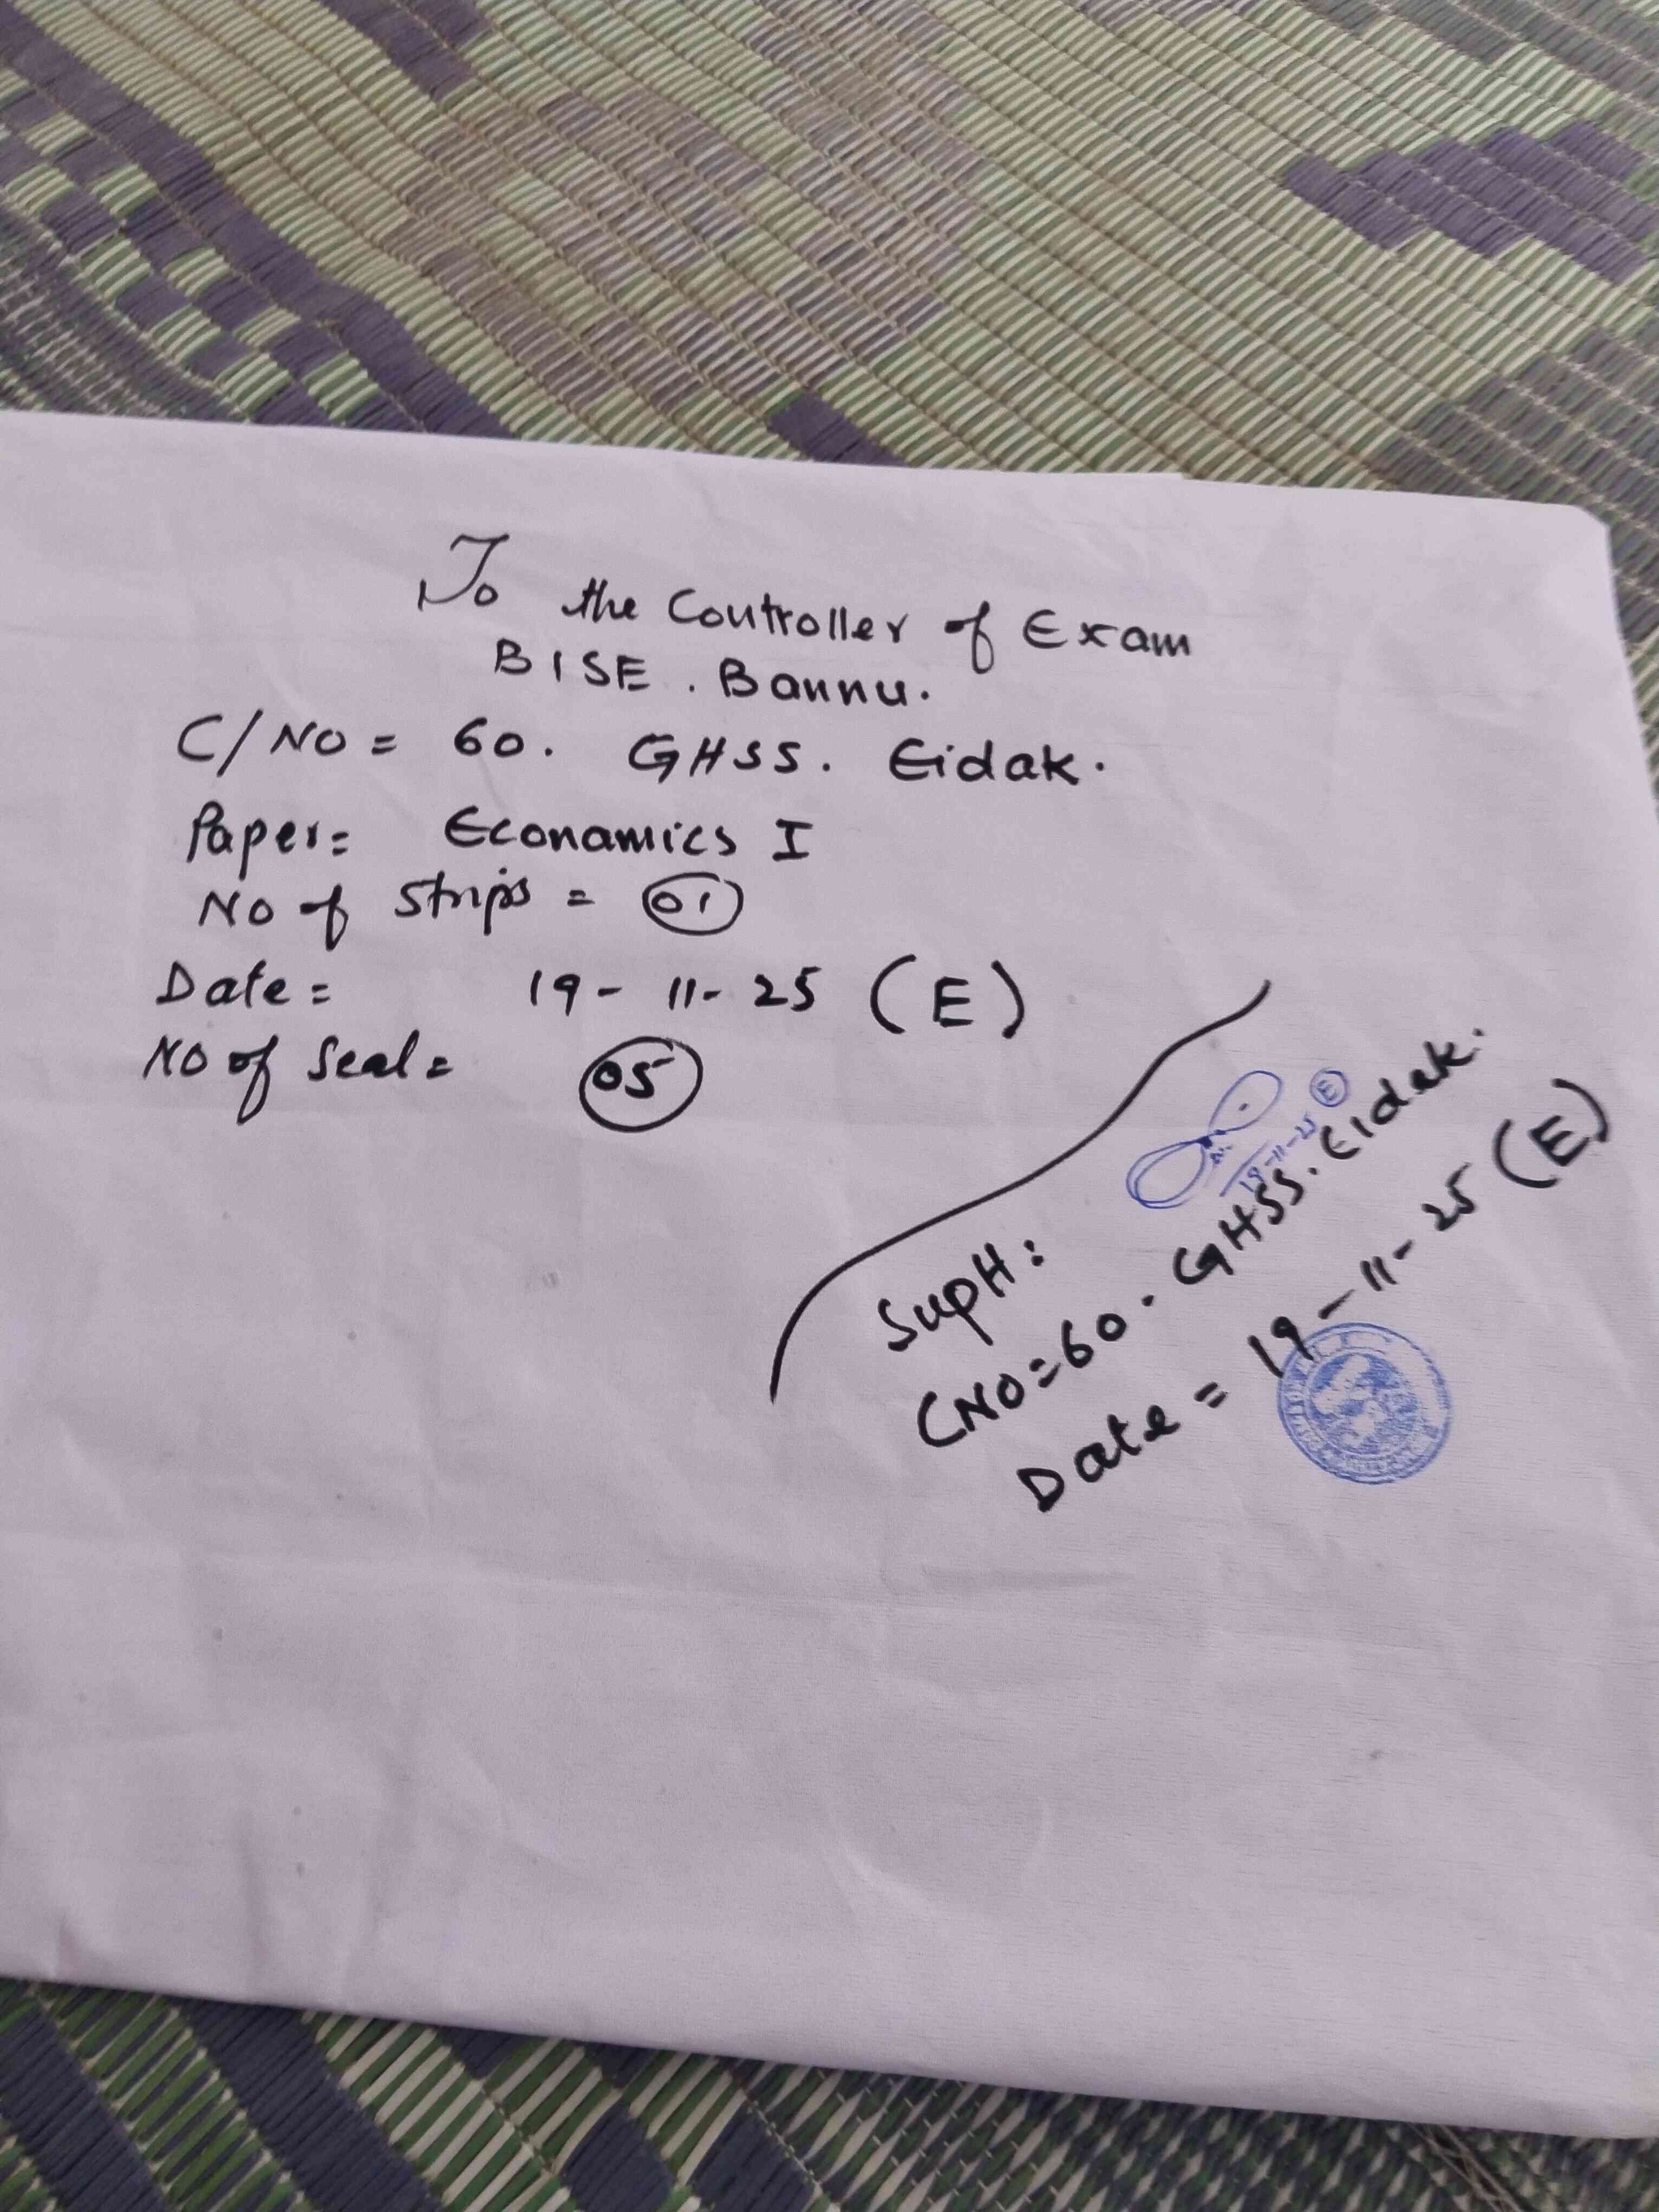 To the Controller of Exam
BISE. Bannu.
C/NO = 60. GHSS. Eidak.
Paper= Economics I
NO of Strips = 01
Date= 19-11-25 (E)
NO of Seal= 05
SupH:
19-11-25 (E)
CNO=60. GHSS. Eidak.
Date = 19-11-25 (E)